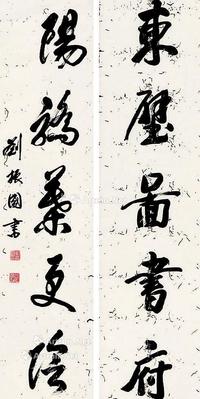 東壁圖書府
陽葉更陰
劉振國書